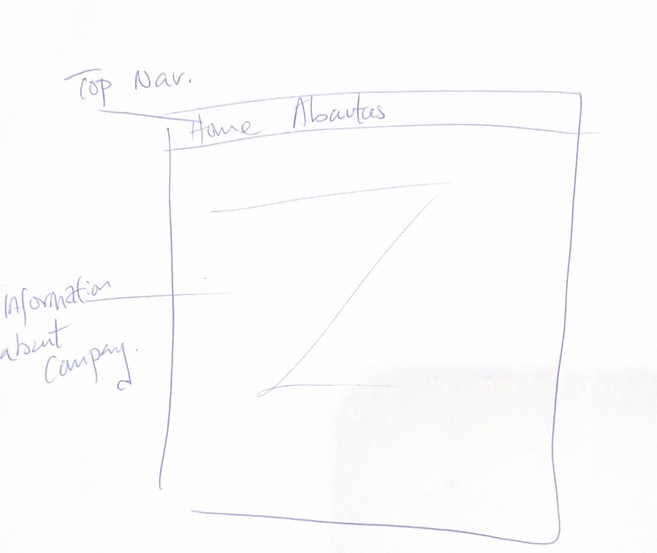 Top Nav.
Home Aboutus
Information
about
Company.